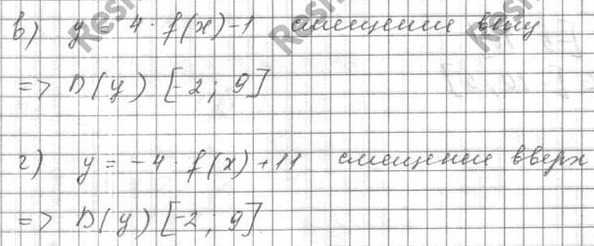 в) y = 4 · f(x) - 1 смещение вниз
=> D(y) [-2; 9]
г) y = -4 · f(x) + 11 смещение вверх
=> D(y) [-2; 9]